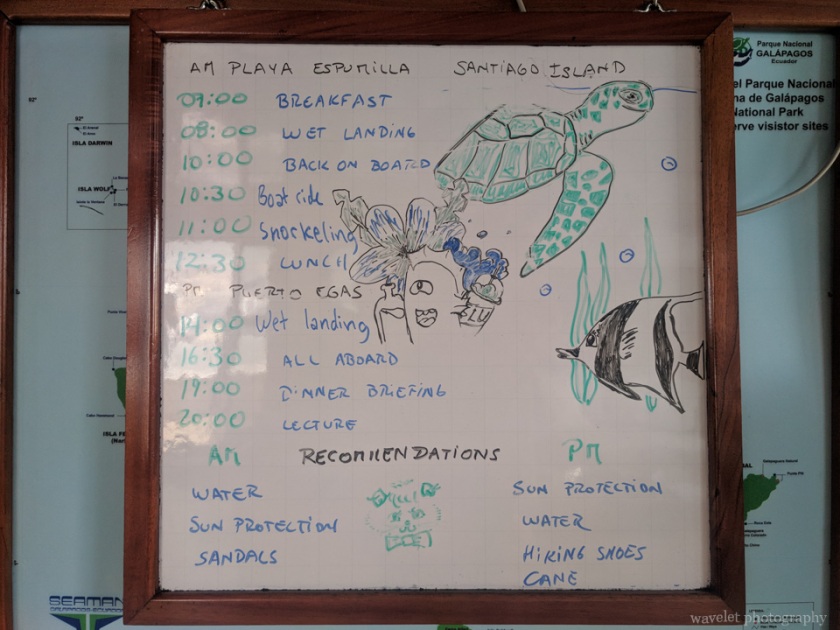 AM PLAYA ESPUMILLA SANTIAGO ISLAND
07:00 BREAKFAST
08:00 WET LANDING
10:00 BACK ON BOARD
10:30 Boat ride
11:00 Snorkeling
12:30 LUNCH
PUERTO EGAS
14:00 Wet landing
16:30 ALL ABOARD
19:00 DINNER BRIEFING
20:00 LECTURE
AM RECOMMENDATIONS PM
WATER
SUN PROTECTION
SANDALS
SUN PROTECTION
WATER
HIKING SHOES
CANE
92°
92°
ISLA DARWIN
ISLA WOLF
SEAMAN
Parque Nacional
GALÁPAGOS
Ecuador
el Parque Nacional
na de Galápagos
National Park
erve visistor sites
wavelet photography